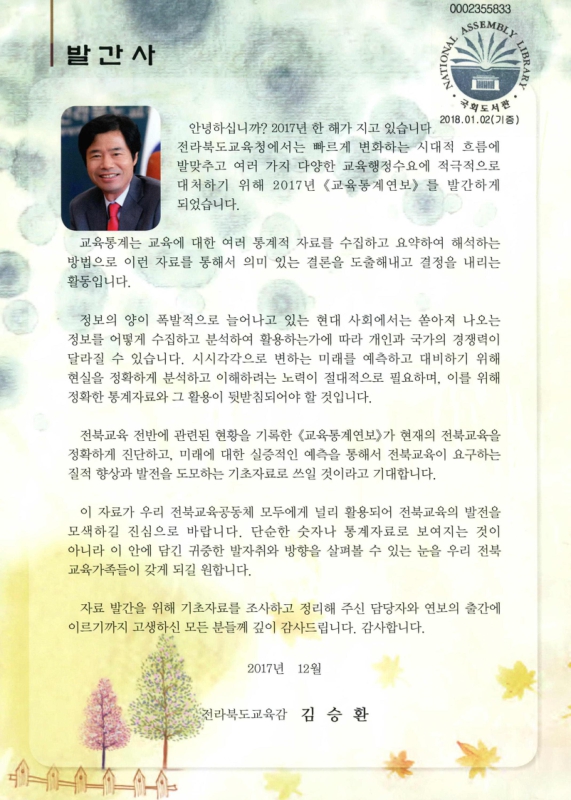 0002355833
NATIONAL ASSEMBLY LIBRARY
국회도서관
2018.01.02(기증)
발간사
안녕하십니까? 2017년 한 해가 지고 있습니다
전라북도교육청에서는 빠르게 변화하는 시대적 흐름에
발맞추고 여러 가지 다양한 교육행정수요에 적극적으로
대처하기 위해 2017년 《교육통계연보》를 발간하게
되었습니다.
교육통계는 교육에 대한 여러 통계적 자료를 수집하고 요약하여 해석하는
방법으로 이런 자료를 통해서 의미 있는 결론을 도출해내고 결정을 내리는
활동입니다.
정보의 양이 폭발적으로 늘어나고 있는 현대 사회에서는 쏟아져 나오는
정보를 어떻게 수집하고 분석하여 활용하는가에 따라 개인과 국가의 경쟁력이
달라질 수 있습니다. 시시각각으로 변하는 미래를 예측하고 대비하기 위해
현실을 정확하게 분석하고 이해하려는 노력이 절대적으로 필요하며, 이를 위해
정확한 통계자료와 그 활용이 뒷받침되어야 할 것입니다.
전북교육 전반에 관련된 현황을 기록한 《교육통계연보》가 현재의 전북교육을
정확하게 진단하고, 미래에 대한 실증적인 예측을 통해서 전북교육이 요구하는
질적 향상과 발전을 도모하는 기초자료로 쓰일 것이라고 기대합니다.
이 자료가 우리 전북교육공동체 모두에게 널리 활용되어 전북교육의 발전을
모색하길 진심으로 바랍니다. 단순한 숫자나 통계자료로 보여지는 것이
아니라 이 안에 담긴 귀중한 발자취와 방향을 살펴볼 수 있는 눈을 우리 전북
교육가족들이 갖게 되길 원합니다.
자료 발간을 위해 기초자료를 조사하고 정리해 주신 담당자와 연보의 출간에
이르기까지 고생하신 모든 분들께 깊이 감사드립니다. 감사합니다.
2017년 12월
전라북도교육감 김승환